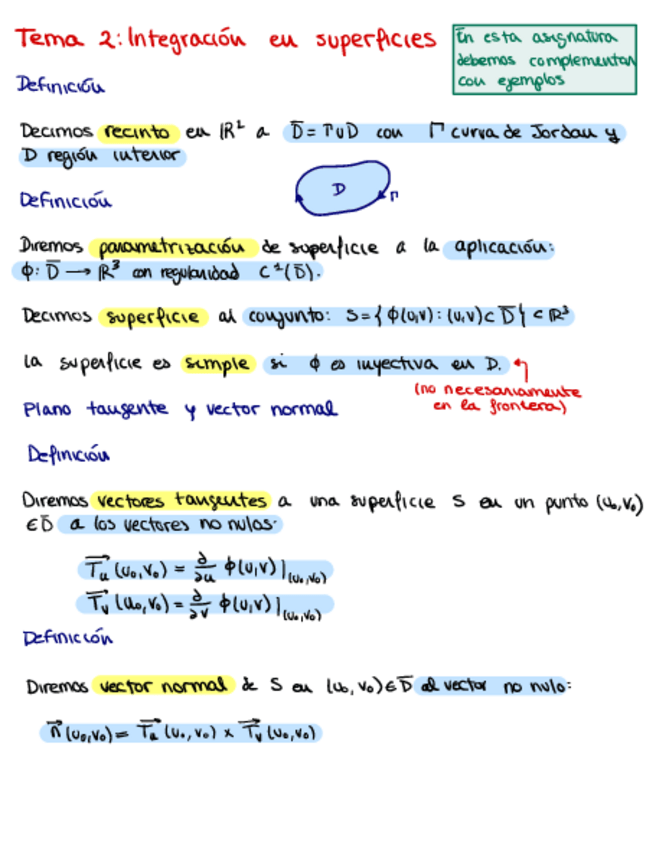 Tema 2: Integración en superficies
En esta asignatura
debemos complementar
con ejemplos
Definición
Decimos recinto en ℝ² a D̄ = Γ∪D con Γ curva de Jordan y
D región interior
D
Γ
Definición
Diremos parametrización de superficie a la aplicación:
ϕ: D̄ → ℝ³ con regularidad C¹(D̄).
Decimos superficie al conjunto: S={ϕ(u,v): (u,v)⊂D̄} ⊂ ℝ³
La superficie es simple si ϕ es inyectiva en D.
(no necesariamente
en la frontera)
Plano tangente y vector normal
Definición
Diremos vectores tangentes a una superficie S en un punto (u₀,v₀)
∈D̄ a los vectores no nulos:
T⃗ᵤ(u₀,v₀) = ∂/∂u ϕ(u,v)|(u₀,v₀)
T⃗ᵥ(u₀,v₀) = ∂/∂v ϕ(u,v)|(u₀,v₀)
Definición
Diremos vector normal de S en (u₀,v₀)∈D̄ al vector no nulo:
n⃗(u₀,v₀) = T⃗ᵤ(u₀,v₀) × T⃗ᵥ(u₀,v₀)